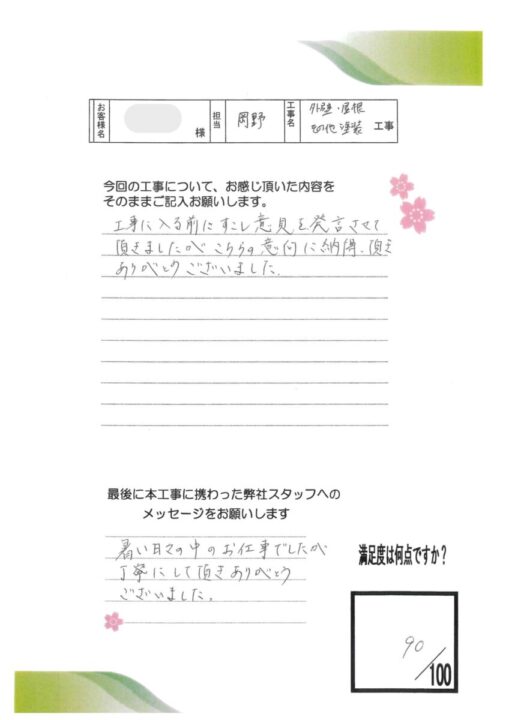 お客様名 様 担当 岡野 工事名 外壁・屋根
その他塗装 工事
今回の工事について、お感じ頂いた内容を
そのままご記入お願いします。
工事に入る前にすこし意見を発言させて
頂きましたが こちらの意向に納得、頂き
ありがとうございました。
最後に本工事に携わった弊社スタッフへの
メッセージをお願いします
暑い日々の中のお仕事でしたが
丁寧にして頂きありがとう
ございました。
満足度は何点ですか?
90/100